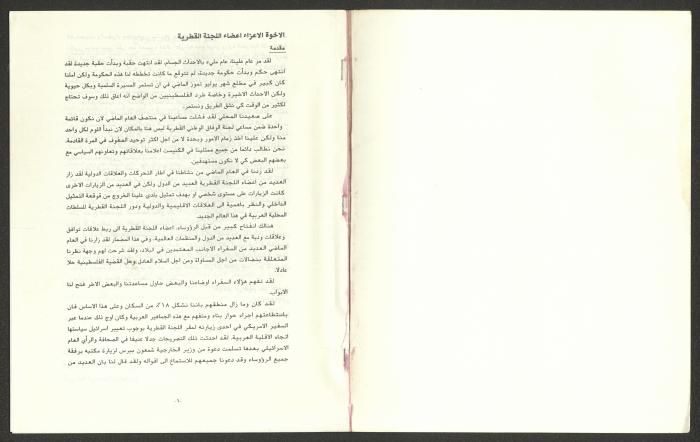 الاخوة الاعزاء اعضاء اللجنة القطرية
مقدمة
لقد مر عام علينا، عام مليء بالاحداث الجسام، لقد انتهت حقبة وبدأت حقبة جديدة، لقد
انتهى حكم وبدأت حكومة جديدة، لم نتوقع ما كانت تخططه لنا هذه الحكومة ولكن املنا
كان كبير في مطلع شهر يوليو تموز الماضي في ان تستمر المسيرة السلمية وبكل حيوية
ولكن الاحداث الاخيرة وخاصة طرد الفلسطينيين من الواضح أنه اعاق ذلك وسوف نحتاج
لكثير من الوقت كي نشق الطريق ونستمر.
على صعيدنا المحلي لقد فشلت مساعينا في منتصف العام الماضي لان نكون قائمة
واحدة ضمن مساعي لجنة الوفاق الوطني القطرية ليس هنا بالمكان لان نبدأ اللوم لكل واحد
منا ولكن علينا اخذ زمام الامور وبحدة لا من اجل اكثر توحيد الصفوف في المرة القادمة.
نحن نطالب دائما من جميع ممثلينا في الكنيست اعلامنا بعلاقاتهم وتعاونهم السياسي مع
بعضهم البعض كي لا نكون مستهدفين.
لقد زدنا في العام الماضي من نشاطنا في اطار التحركات والعلاقات الدولية لقد زار
العديد من اعضاء اللجنة القطرية العديد من الدول ولكن في العديد من الزيارات الاخرى
كانت الزيارات على مستوى شخصي او بهدف تمثيل بلدي علينا الخروج من قوقعة التمثيل
الداخلي والنظر باهمية الى العلاقات الاقليمية والدولية ودور اللجنة القطرية للسلطات
المحلية العربية في هذا العالم الجديد.
هنالك انفتاح كبير من قبل الرؤوساء، اعضاء اللجنة القطرية الى ربط علاقات توافق
وعلاقات ودية مع العديد من الدول والمنظمات العالمية، وفي هذا المضمار لقد زارنا في العام
الماضي العديد من السفراء الاجانب المعتمدين في البلاد، ولقد شرحت لهم وجهة نظرنا
المتعلقة بنضالات من اجل المساواة ومن اجل السلام العادل وحل القضية الفلسطينية حلا
عادلا.
لقد تفهم هؤلاء السفراء اوضاعنا والبعض حاول مساعدتنا والبعض الاخر فتح لنا
الابواب.
لقد كان وما زال منطقهم باننا نشكل ١٨٪ من السكان وعلى هذا الاساس فان
باستطاعتهم اجراء حوار بناء ومتفهم مع هذه الجماهير العربية وكان أوج ذلك عندما عبر
السفير الامريكي في احدى زيارته لمقر اللجنة القطرية بوجوب تغيير اسرائيل سياستها
اتجاه الاقلية العربية. لقد احدثت تلك التصريحات جدلا عنيفا في الصحافة والرأي العام
الاسرائيلي بعدها تسلمت دعوة من وزير الخارجية شمعون بيرس لزيارة مكتبه برفقة
جميع الرؤوساء وقد دعونا جميعهم للاستماع الى اقواله ولقد قال لنا بان العديد من
.١.